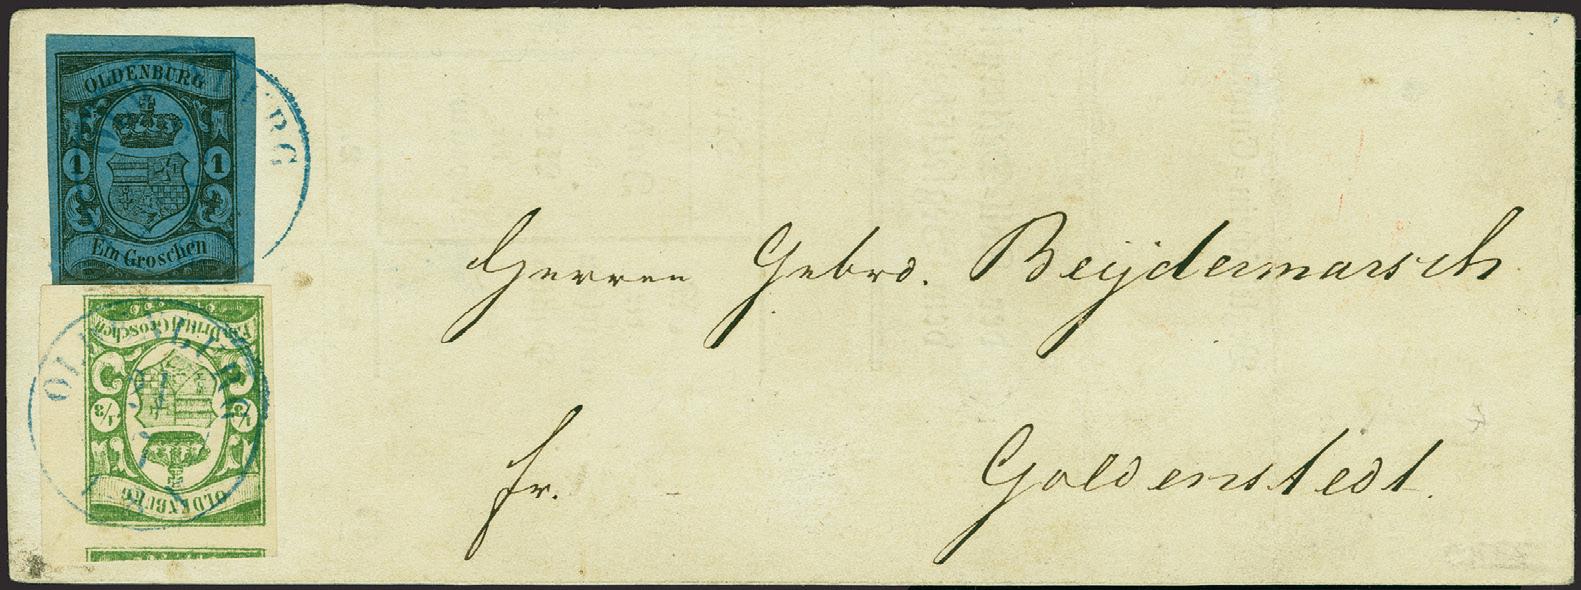 OLDENBURG
1 1
Ein Groschen
OLDENBURG
Herren Gebrd. Beijdermarsch
Ein Drittel Groschen
1/3 1/3
OLDENBURG
OLDENBURG
fr. Goldenstedt.